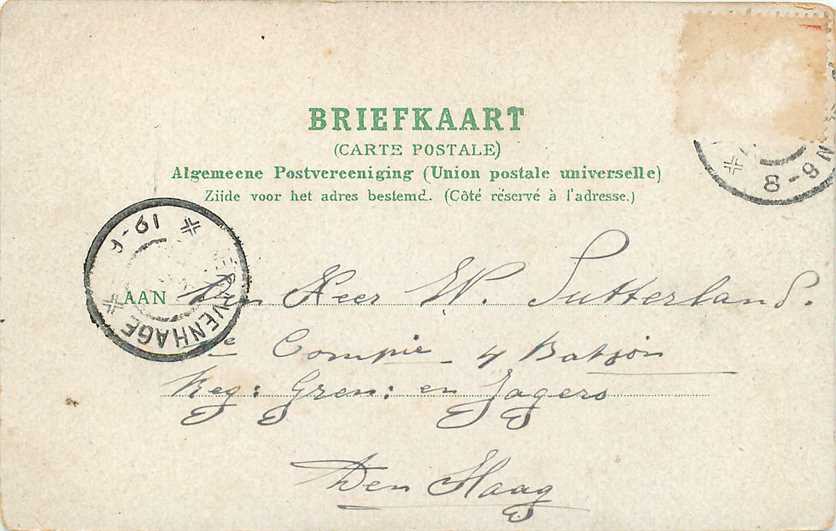 BRIEFKAART
(CARTE POSTALE)
Algemeene Postvereeniging (Union postale universelle)
Zijde voor het adres bestemd. (Côté réservé à l'adresse.)
8-9 N
AAN Den Heer W. Sutterland.
e Compie - 4 Batjon
Reg: Gren: en Jagers
Den Haag